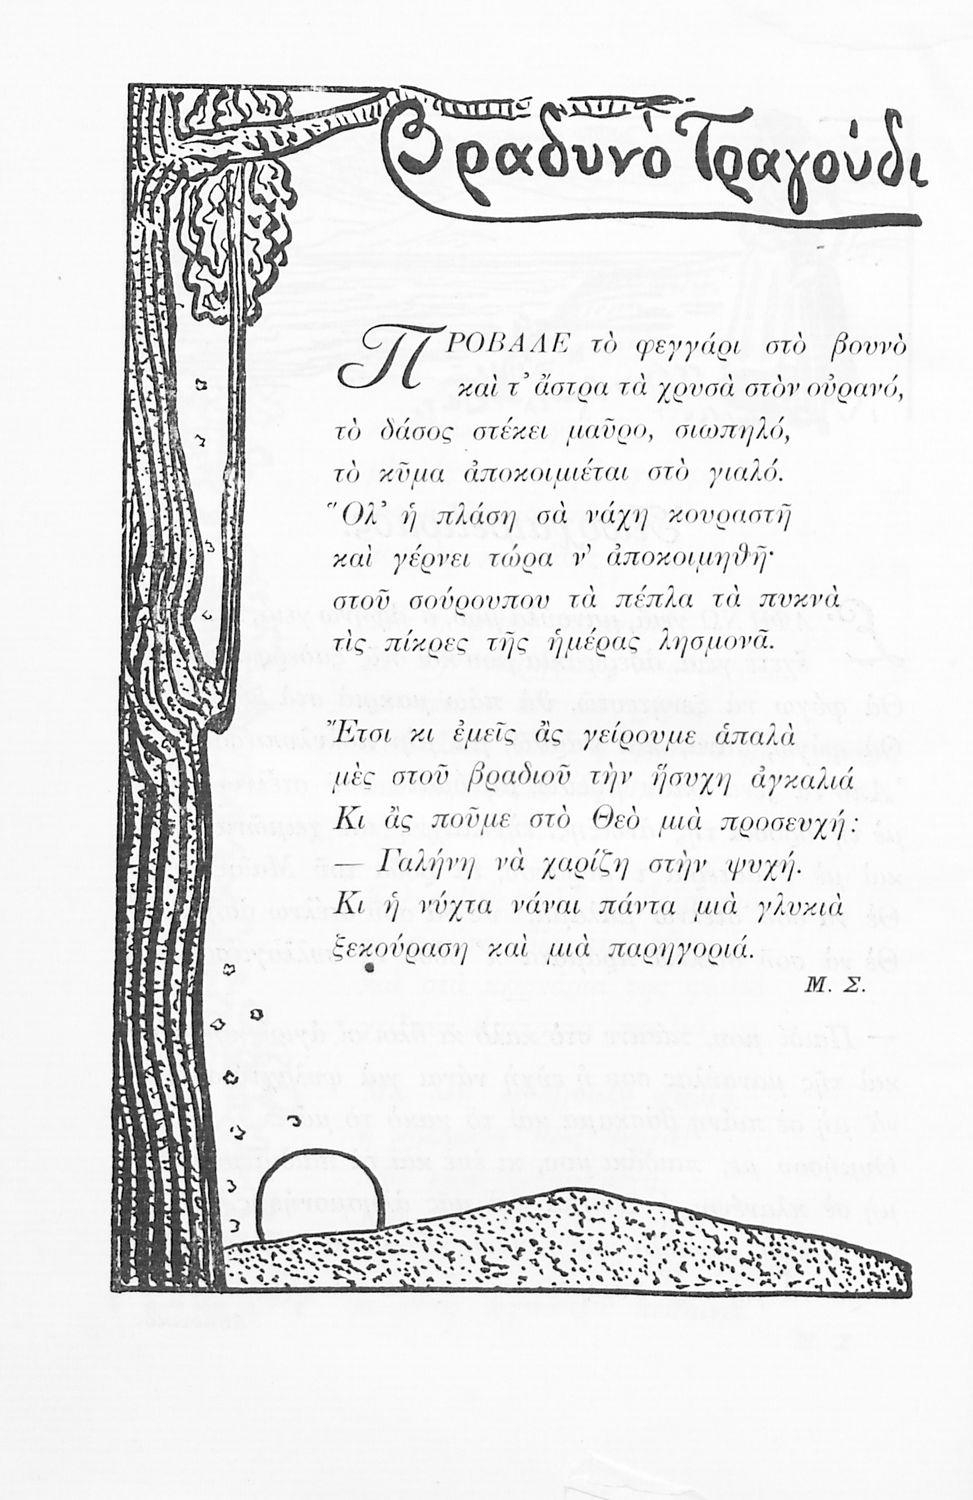 Βραδυνὸ Τραγούδι
ΠΡΟΒΑΛΕ τὸ φεγγάρι στὸ βουνὸ
καὶ τ' ἄστρα τὰ χρυσὰ στὸν οὐρανό,
τὸ δάσος στέκει μαῦρο, σιωπηλό,
τὸ κῦμα ἀποκοιμιέται στὸ γιαλό.
Ὅλ' ἡ πλάση σὰ νάχη κουραστῆ
καὶ γέρνει τώρα ν' ἀποκοιμηθῆ·
στοῦ σούρουπου τὰ πέπλα τὰ πυκνὰ
τὶς πίκρες τῆς ἡμέρας λησμονᾶ.
Ἔτσι κι ἐμεῖς ἂς γείρουμε ἁπαλὰ
μὲς στοῦ βραδιοῦ τὴν ἥσυχη ἀγκαλιά
Κι ἂς ποῦμε στὸ Θεὸ μιὰ προσευχή:
— Γαλήνη νὰ χαρίζη στὴν ψυχή.
Κι ἡ νύχτα νάναι πάντα μιὰ γλυκιὰ
ξεκούραση καὶ μιὰ παρηγοριά.
Μ. Σ.